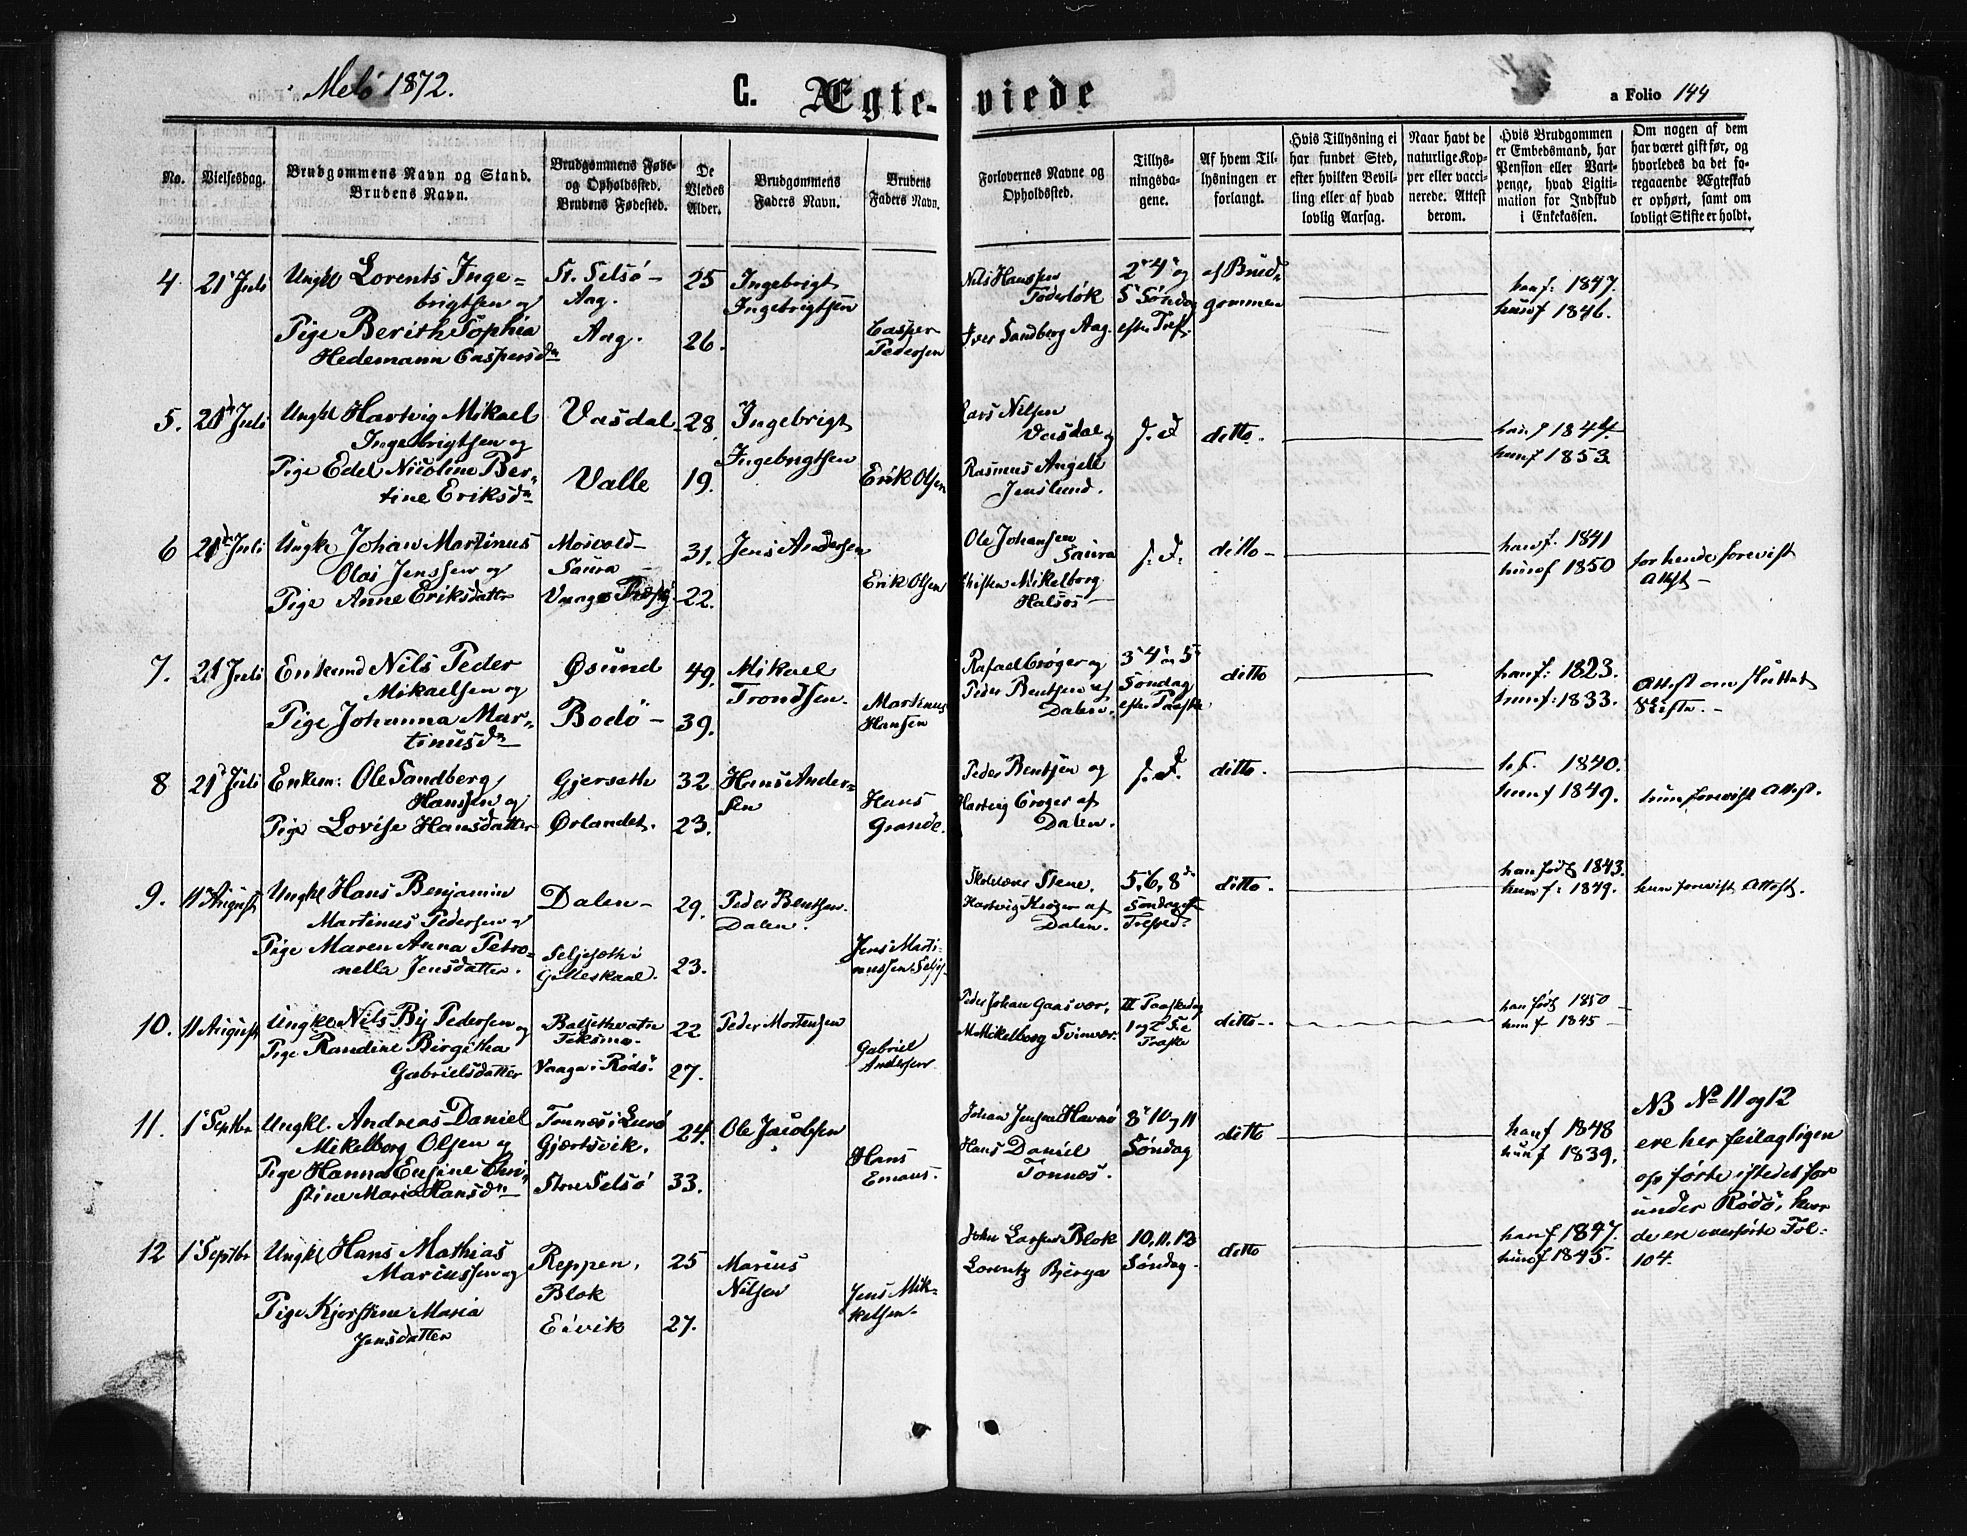 Melø 1872.
C. Ægteviede
a Folio 144
No.
Vielsesdag.
Brudgommens Navn og Stand.
Brudens Navn.
Brudgommens Føde-
og Opholdssted.
Brudens Fødested.
De
Viedes
Alder.
Brudgommens
Faders Navn.
Brudens
Faders Navn.
Forlovernes Navne og
Opholdssted.
Tillys-
ningsda-
gene.
Af hvem Til-
lysningen er
forlangt.
Hvis Tillysning ei
har fundet Sted,
efter hvilken Bevil-
ling eller af hvad
lovlig Aarsag.
Naar havt de
naturlige Kop-
per eller vacci-
nerede. Attest
derom.
Hvis Brudgommen
er Embedsmand, har
Pension eller Vart-
penge, hvad Ligiti-
mation for Indskud
i Enkekassen.
Om nogen af dem
har været gift før, og
hvorledes da det fo-
regaaende Ægteskab
er ophørt, samt om
lovligt Skifte er holdt.
4
21 Juli
Ungkl Lorents Inge-
brigtsen og
Pige Berith Sophia
Hedemann Caspersdr
St. Selsø -
Aag.
Aag.
25
26.
Ingebrigt
Ingebrigtsen
Casper
Pedersen
Nils Hanssen
Iver Sandberg Aag.
2' 4' og
5' Søndag
efter Tref.
af Brud-
gommen
han f: 1847.
hun f 1846.
5.
21 Juli
Ungkl Hartvig Mikael
Ingebrigtsen og
Pige Edel Nicoline Ber-
tine Eriksdr
Vasdal
Valle
28.
19.
Ingebrigt
Ingebrigtsen
Erik Olsen
Lars Nilsen
Vasdal og
Rasmus Angell
Jenslund.
ditto.
han f 1844.
hun f 1853
6
21 Juli
Ungkl Johan Martinus
Olai Jenssen og
Pige Anne Eriksdatter
Mosvold -
Saura
31.
22.
Jens Andersen
Erik Olsen
Ole Johansen
Saura
Mikelborg
Halsos
ditto -
han f. 1841
hun f 1850
for hende forevist
Attest -
7.
21 Juli
Enkemd Nils Peder
Mikaelsen og
Pige Johanna Mar-
tinusdr
Øsund
Bodø -
49.
39.
Mikael
Trondsen.
Martinus
Hansen
Rafael Crøger og
Peder Bentsen af
Dalen.
3' 4' og 5'
Søndag
efter Paaske
ditto
han f: 1823.
hun f: 1833.
Attest om sluttet
Skifte. -
8
21 Juli
Enkem: Ole Sandberg
Hanssen og
Pige Lovise Hansdatter
Gjerseth
Ørlandet.
32.
23.
Hans Ander-
sen
Hans
Grande.
Peder Bentsen og
Hartvig Crøger af
Dalen.
ditto.
h. f. 1840.
hun f 1849.
hun forevist Attest.
9.
11 August
Ungkl Hans Benjamin
Martinus Pedersen og
Pige Maren Anna Petro-
nella Jensdatter.
Dalen -
Seljesæth i
Gilleskaal.
29.
23.
Peder Bentsen.
Dalen.
Jens Marti-
nussen
Stene,
Hartvig Krøger af
Dalen.
5, 6, 8de
Søndag eft
Trefred.
ditto.
han født 1843.
hun f: 1849.
hun forevist Attest.
10.
11 August
Ungkl. Nils By Pedersen og
Pige Randine Birgitha
Gabrielsdatter
Vaaga i Rødø.
22
27.
Peder Mortensen
Gabriel
Andersen
Peder Johan Gaasvær,
M. Mikelborg Svinvær.
II Paaskedag
1 og 2 S. e
Paaske
ditto.
han født 1850 -
hun f 1845 -
11.
1' Septbr
Ungkl. Andreas Daniel
Mikelborg Olsen og
Pige Hanna Ensine Chri-
stine Maria Hansdr
Tonnæs i Lurø
Gjærtsvik.
Store Selsø
24.
33.
Ole Jacobsen
Hans
Emaus.
Johan Jensen Havnø
Hans Daniel
Tonnæs.
8' 10 og 11
Søndag
ditto
han f 1848
hun f 1839.
NB No 11 og 12
ere her feilagtigen
opførte istedetfor
under Rødø, hvor
de ere overførte Fol-
104.
12
1' Septbr
Ungkl Hans Mathias
Mariussen og
Pige Kjerstine Maria
Jensdatter
Reppen,
Blok
Eivik
25
27.
Marius
Nilsen
Jens Mik-
kelsen.
John Larsen Blok
Lorentz Bjerga
10, 11, 12
Søndag.
ditto
han f 1847.
hun f 1845.